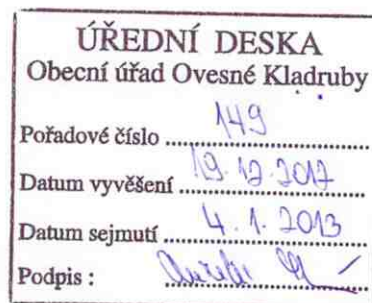 ÚŘEDNÍ DESKA
Obecní úřad Ovesné Kladruby
Pořadové číslo 149
Datum vyvěšení 19. 12. 2012
Datum sejmutí 4. 1. 2013
Podpis :